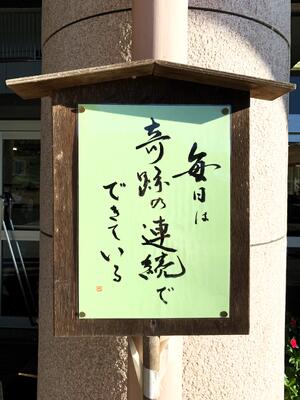 毎日は
奇跡の連続で
できている